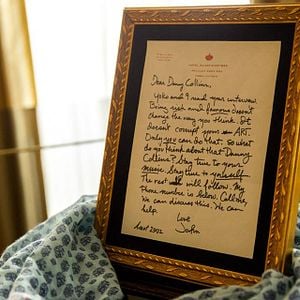 Dear Danny Collins,
Yoko and I read your interview.
Being rich and famous doesnt
change the way you think. It
doesnt corrupt your ART.
Only you can do that. So what
do you think about that Danny
Collins? Stay true to your
music. Stay true to yourself
The rest will follow. My
phone number is below. Call me,
We can discuss this. We can
help.
Love
John